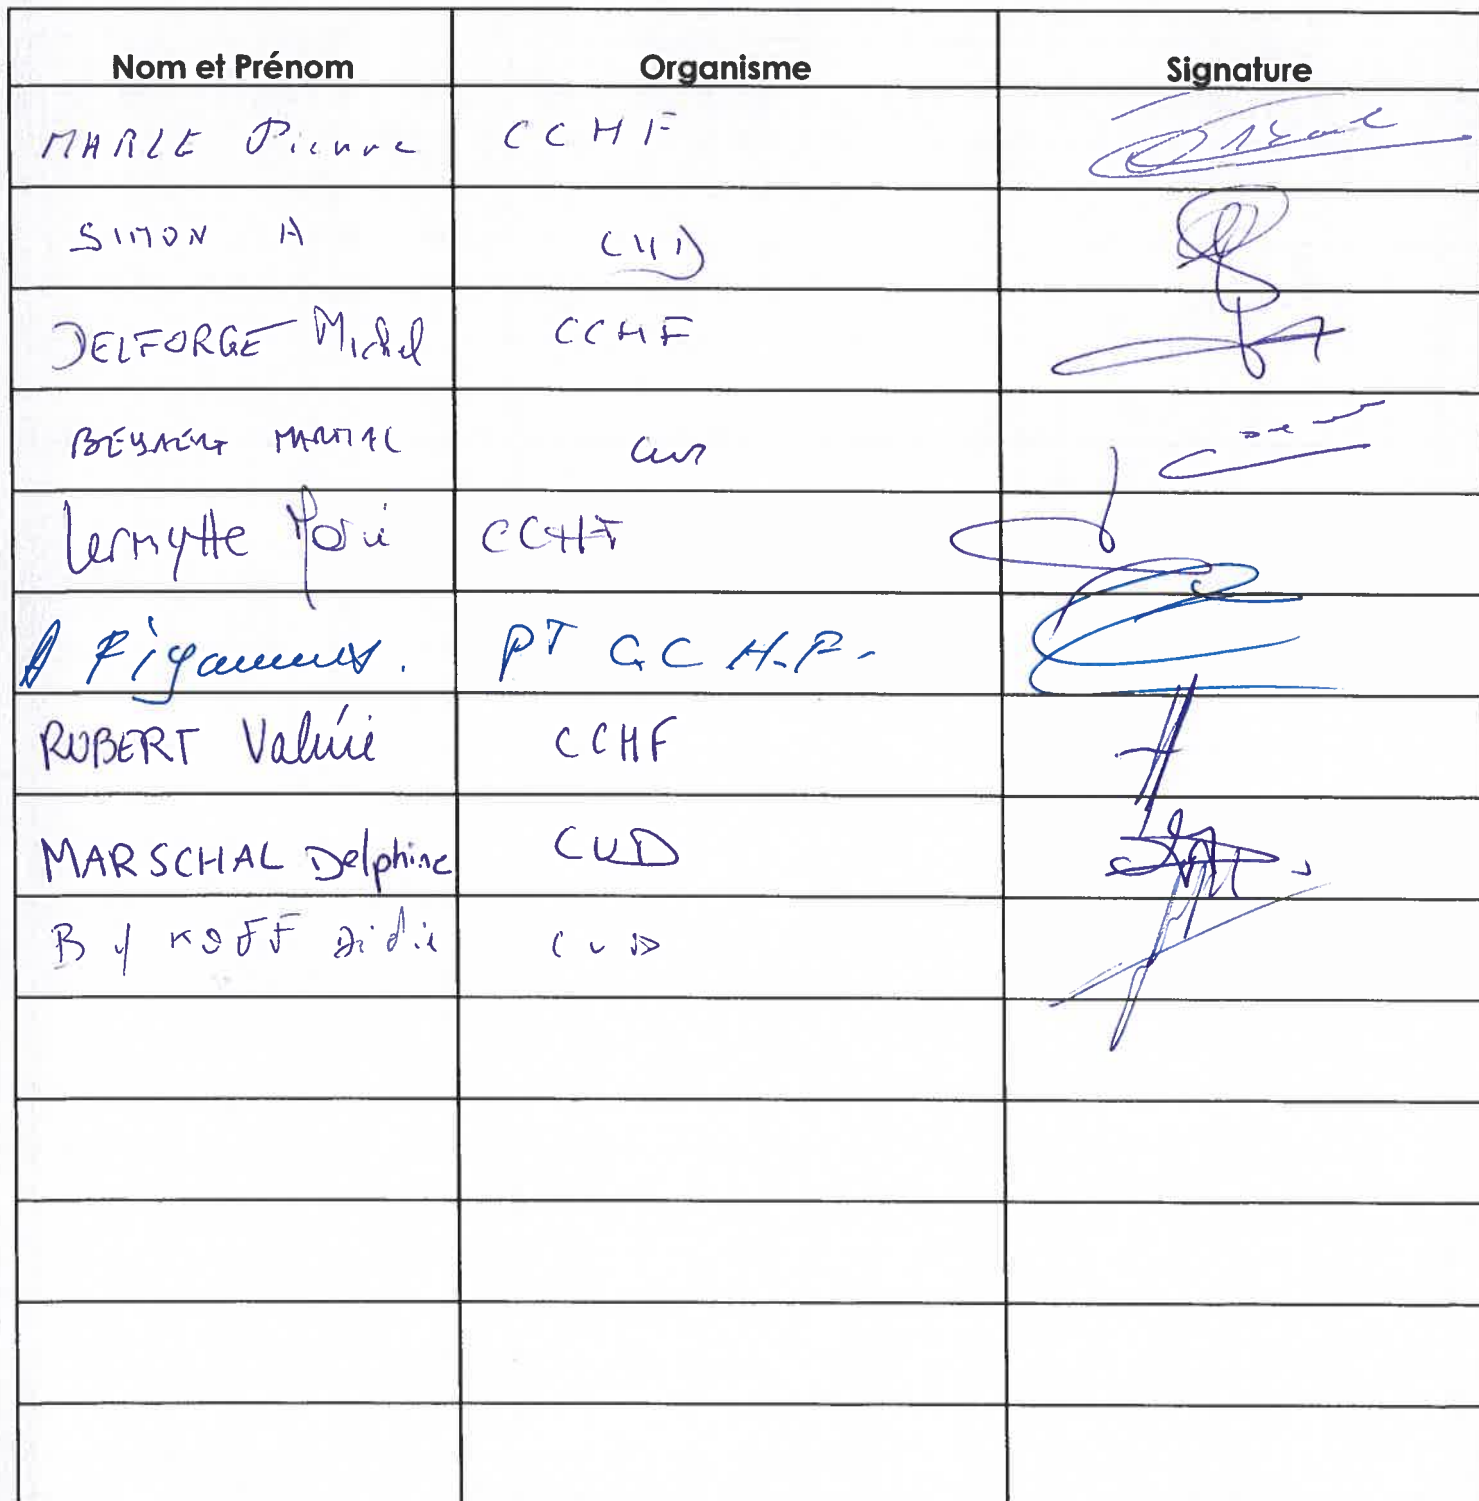 Nom et Prénom Organisme Signature
MARLE Pierre CCHF
SIMON A CUD
DELFORGE Michel CCHF
MARTIAL CUD
Lermytte CCHF
A Figoureux. PT C.C.H.F.
ROBERT Valérie CCHF
MARSCHAL Delphine CUD
BYKOFF Didier CUD